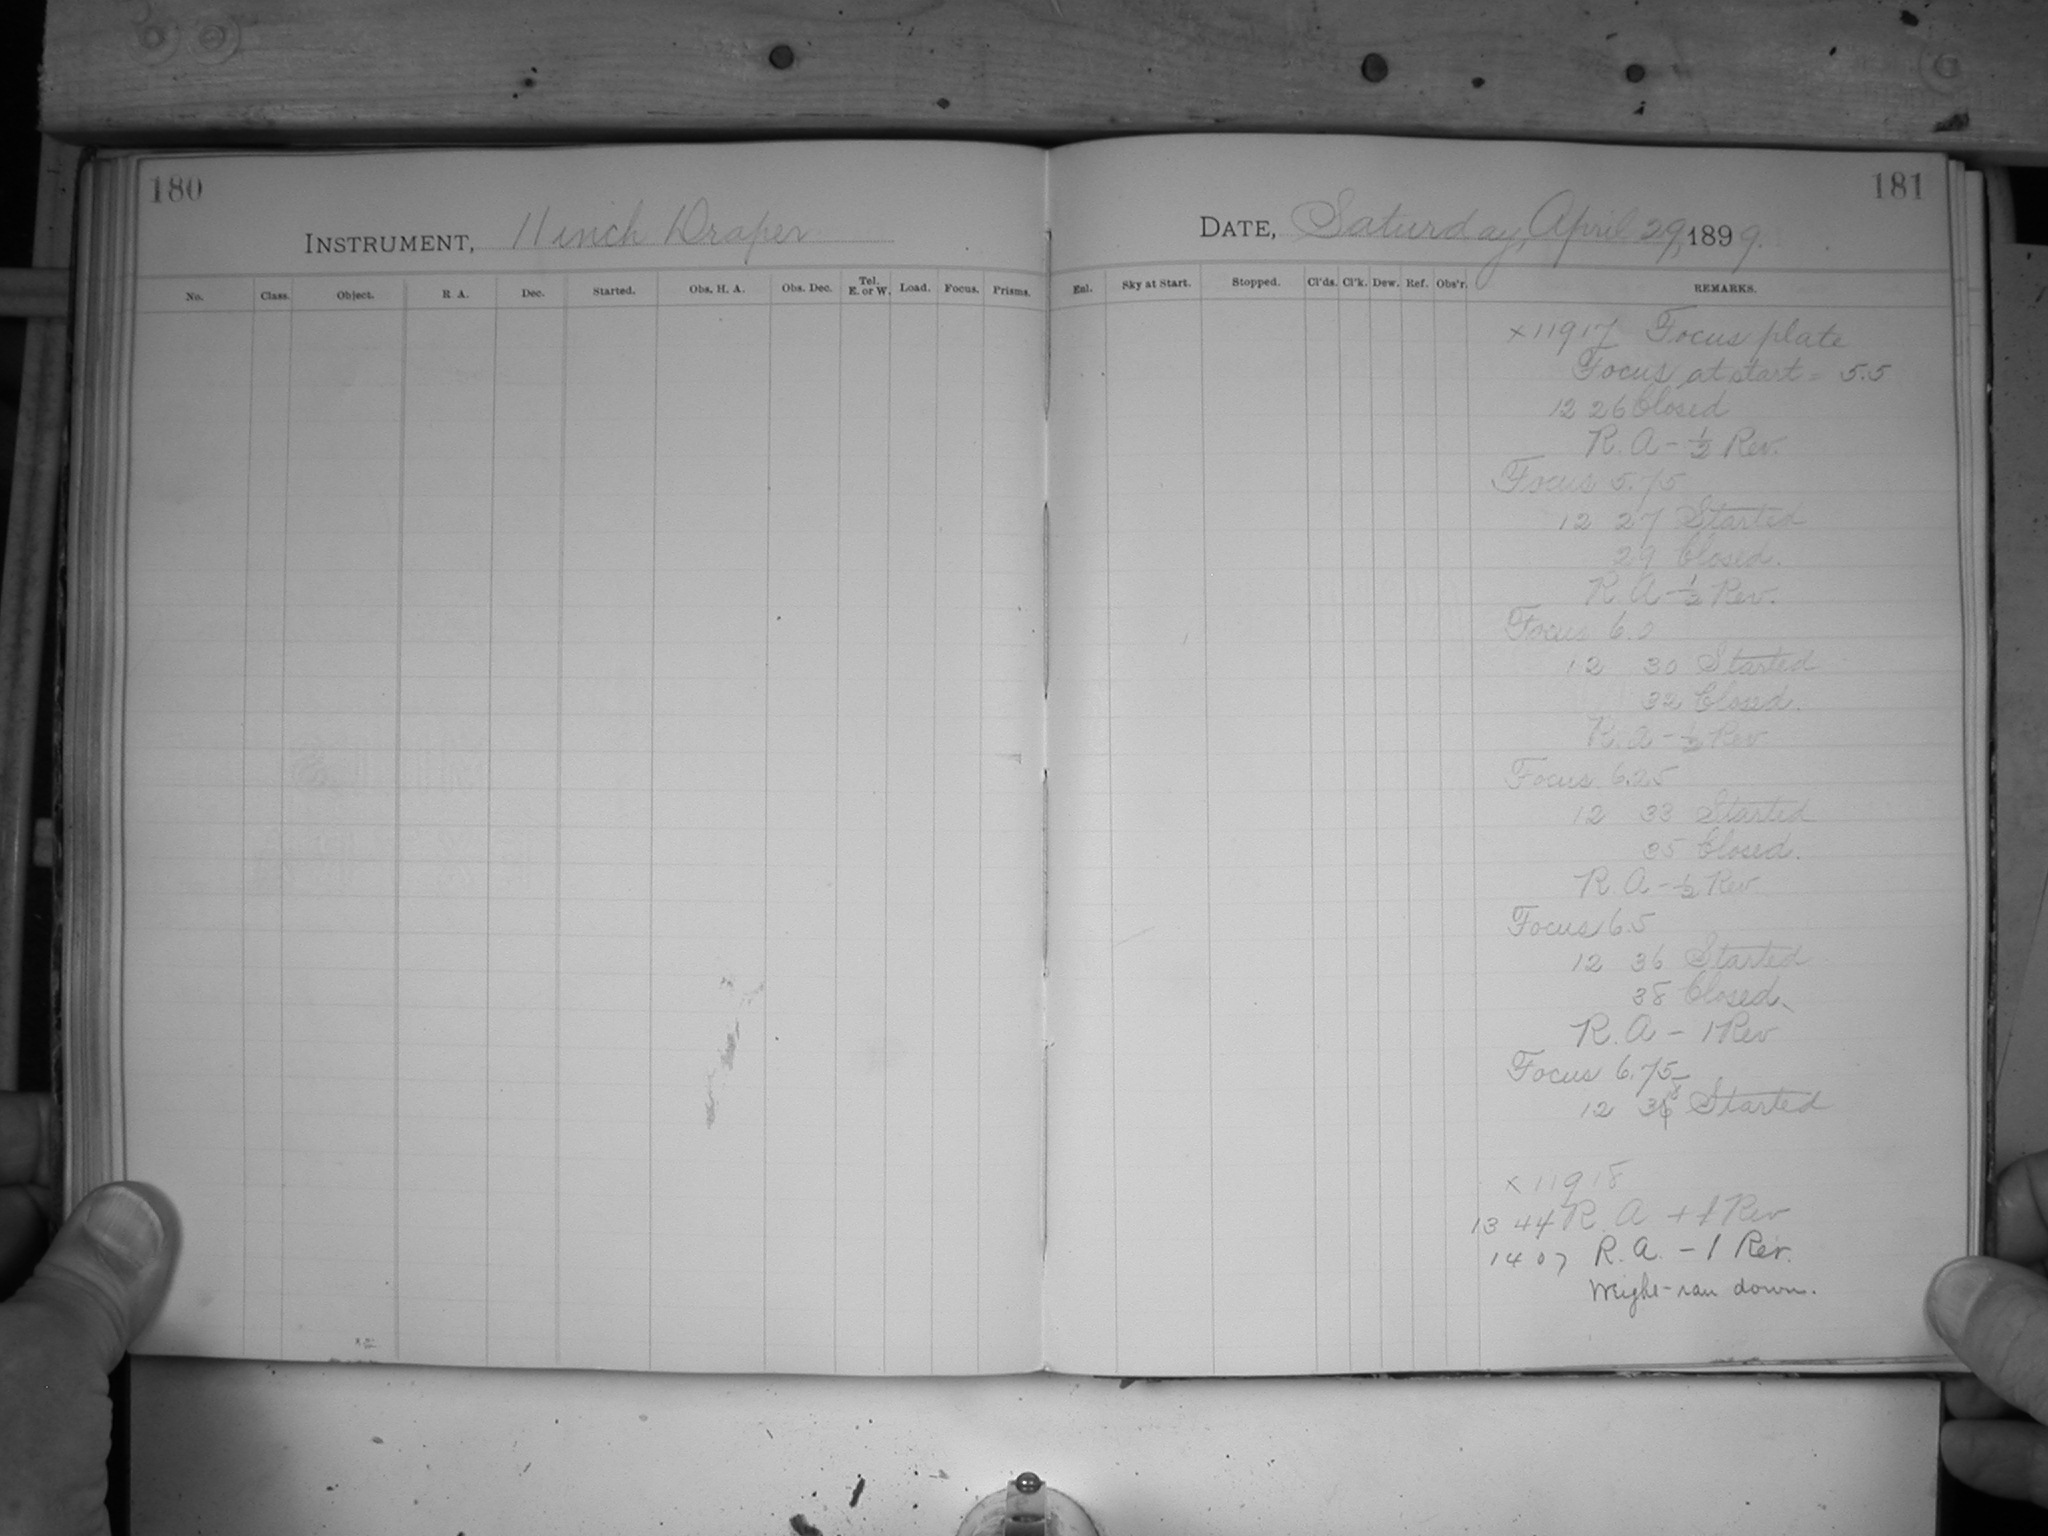 180
INSTRUMENT, 11 inch Draper
No. Class. Object. R A. Dec. Started. Obs. H. A. Obs. Dec. Tel. E. or W. Load. Focus. Prisms.
181
DATE, Saturday, April 29, 1899.
Enl. Sky at Start. Stopped. Cl'ds. Cl'k. Dew. Ref. Obs'r. REMARKS.
x 11917 Focus plate
Focus at start = 5.5
12 26 Closed
R. A - 1/2 Rev.
Focus 5.75
12 27 Started
29 Closed.
R. A - 1/2 Rev.
Focus 6.0
12 30 Started
32 Closed.
R. A - 1/2 Rev
Focus 6.25
12 33 Started
35 Closed.
R. A - 1/2 Rev
Focus 6.5
12 36 Started
38 Closed.
R. A - 1 Rev
Focus 6.75
12 38 Started
x 11918
13 44 R. A + 1 Rev
14 07 R. A. - 1 Rev.
Weight ran down.